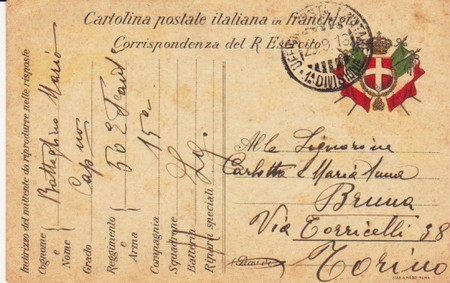 Cartolina postale italiana in franchigia
Corrispondenza del R. Esercito
1ª DIVISIONE
Indirizzo del mittente da riprodurre nelle risposte
Cognome e Nome Battaglino Mario
Grado Cap no
Reggimento e Arma 50 Fant
Compagnia 15a
Squadrone
Batteria
Riparti speciali
Alle Signorine
Carlotta e Maria Anna
Bruna
Via Torricelli 38
Torino